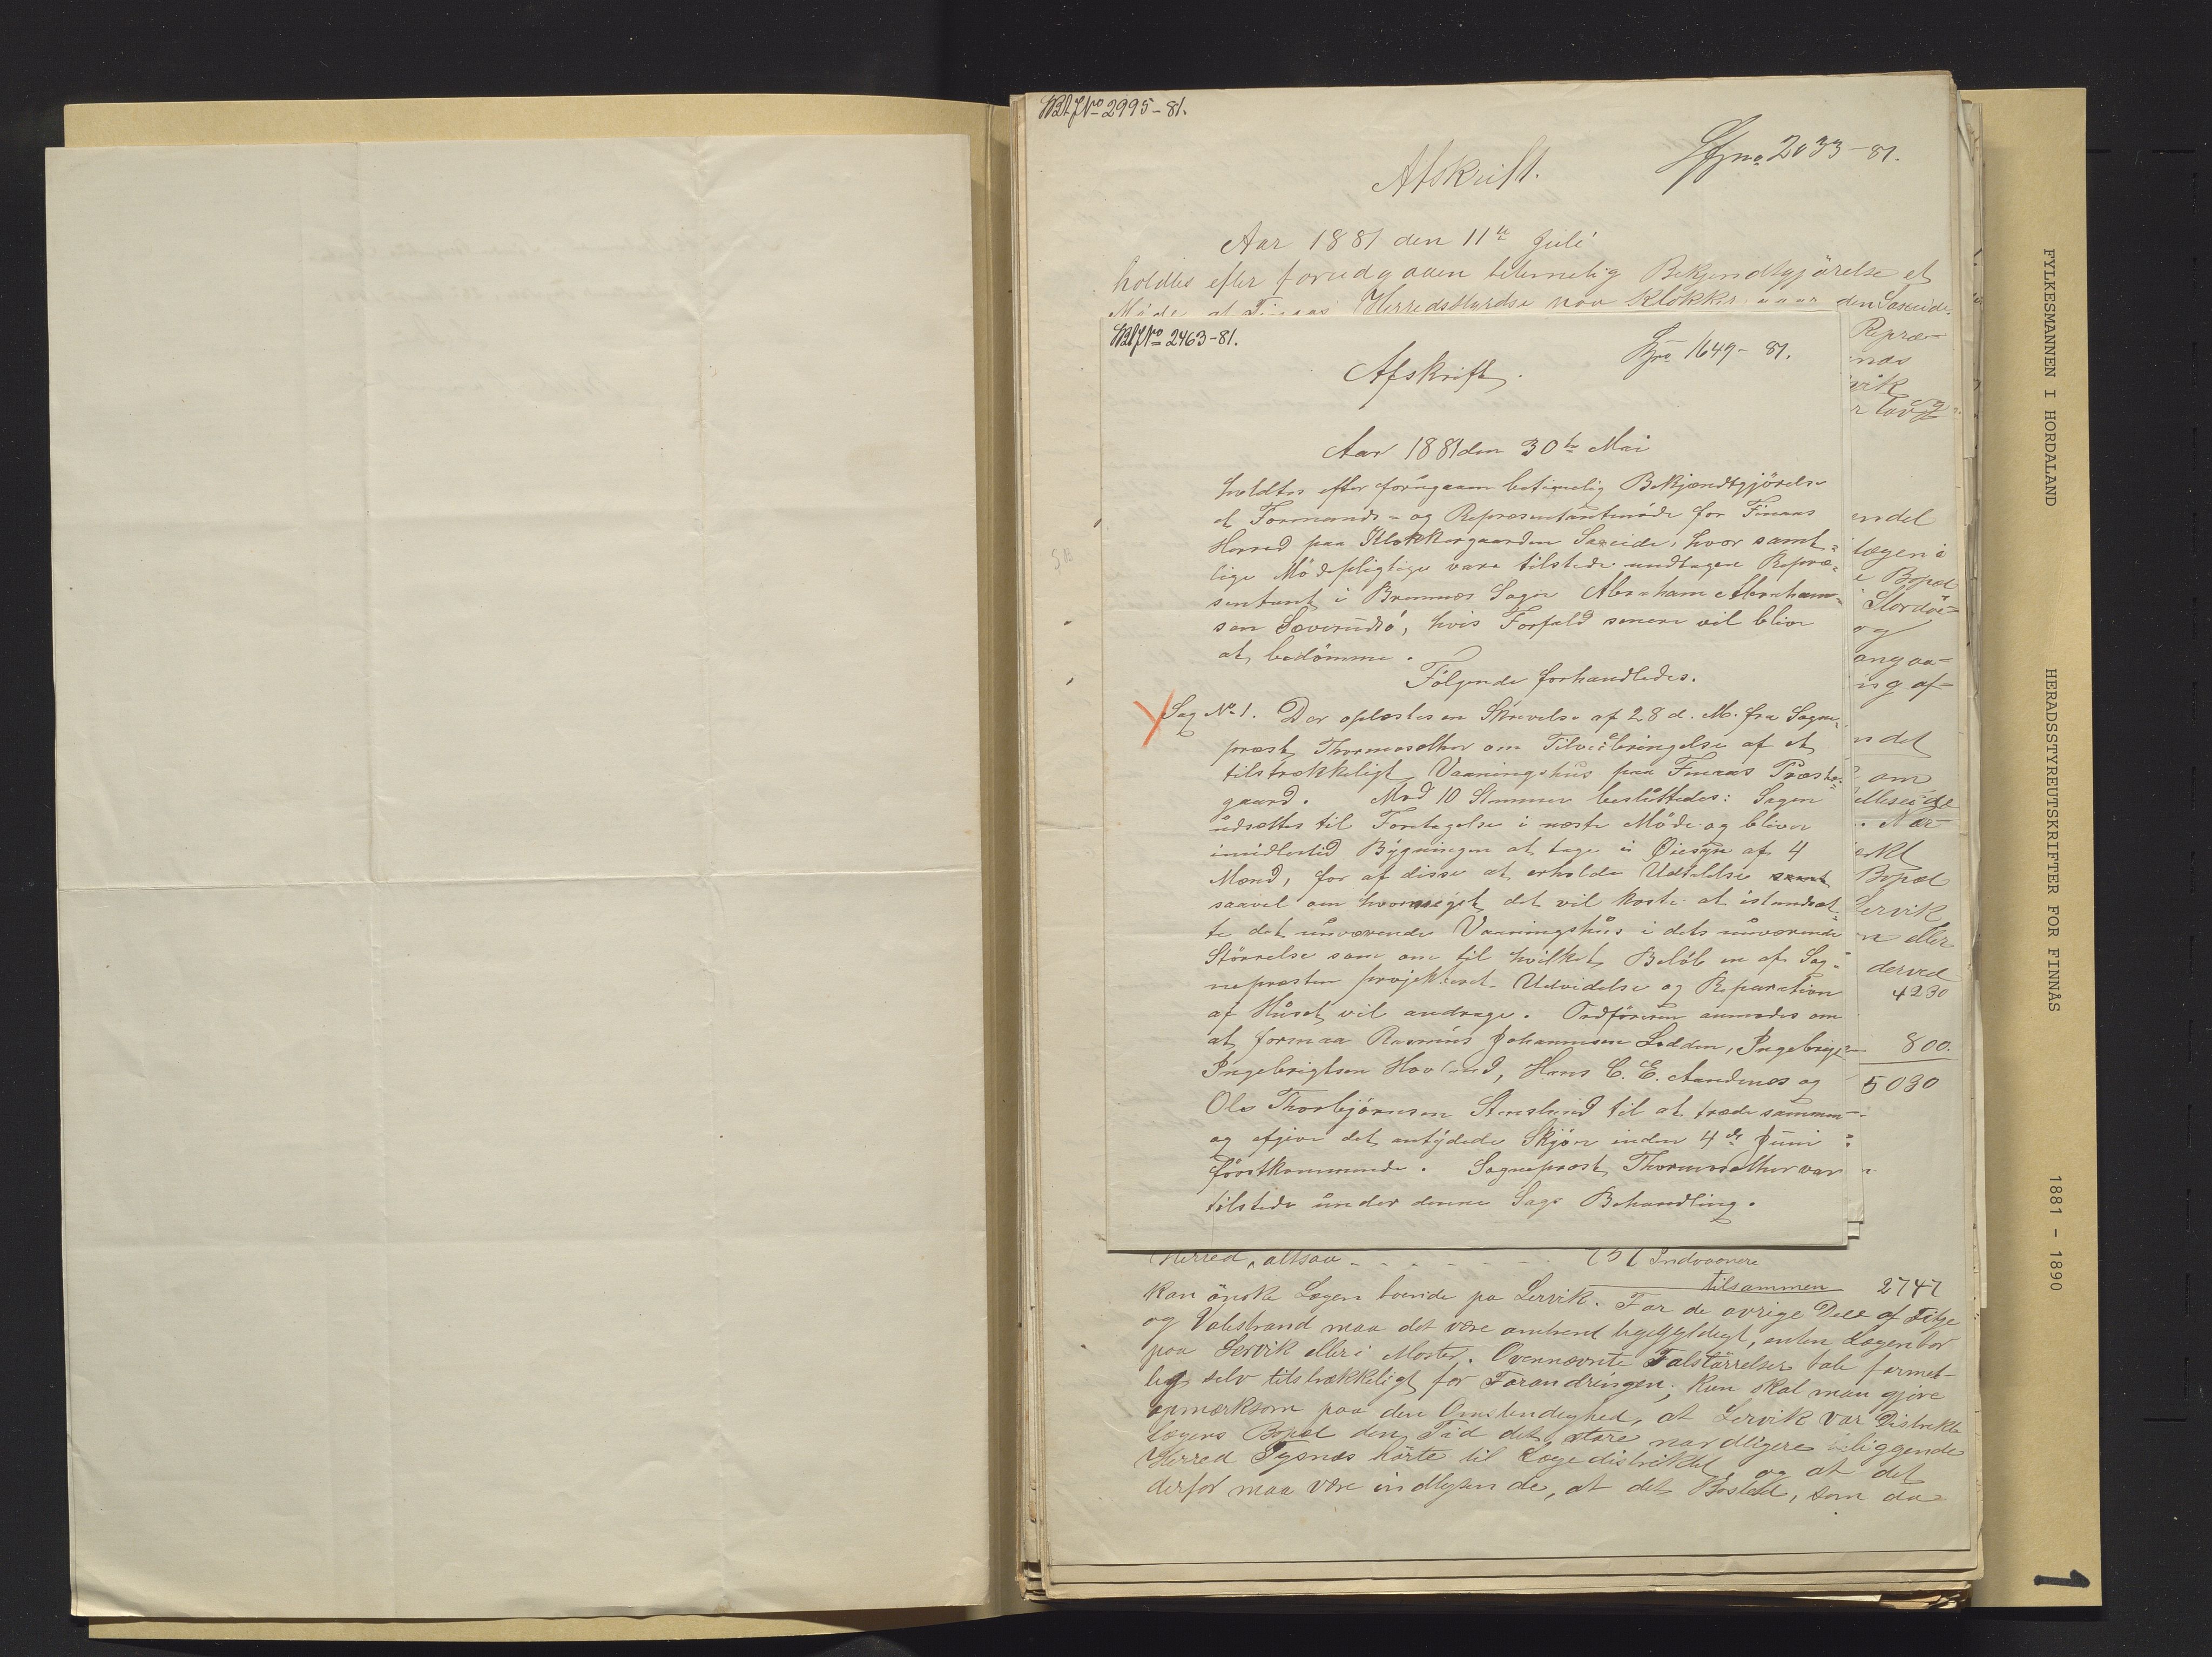 No 2995-81.
Lfjno 2033-81.
Afskrift.
Aar 1881 den 11te Juli
holdtes efter forudgaaen betimelig Bekjendtgjörelse et
Herredsstyrelse paa Klokker den Saxeide
No 2463-81.
1649-81.
Afskrift.
Aar 1881 den 30te Mai
holdtes efter forúgaaen betimelig Bekjændtgjörelse
et Formands- og Representantmöde for Finaas
Herred paa Klokkergaarden Saxeide, hvor samt-
lige Mödepligtige vare tilstede undtagen Repræ-
sentant i Bremnes Sogn Abraham Abraham-
sen Sæverúdsö, hvis Forfald senere vil blive
at bedömme.
Fölgende forhandledes.
Sag No 1. Der oplæstes en Skrivelse af 28 d. M. fra Sogne-
præst Thormosæther om Tilveiebringelse af et
tilstrækkeligt Vaaningshús paa Finaas Præste-
gaard. Med 10 Stemmer beslúttedes: Sagen
údsættes til Foretagelse i næste Möde og bliver
imidlertid Bygningen at tage i Øiesyn af 4
Mænd, for af disse at erholde Udtalelse
saavel om hvormeget det vil koste at istandsæt-
te det núværende Vaaningshús i dets núværende
Störrelse som om til hvilket Belöb en af Sog-
nepræsten projekteret Udvidelse og Reparation
af Húset vil andrage. Ordföreren anmodes om
at formaa Rasmús Johannesen Lodden, Ingebrigt
Ingebrigtsen Hovland, Hans C. E. Aandenes og
Ole Thorbjörnsen Stueslund til at træde sammen
og afgive det antydede Skjön inden 4de Júni
förstkommende. Sognepræst Thormosæther var
tilstede únder denne Sags Behandling.
Repræ-
næs
vik
r lovlig
endel
lægen i
e Bopæl
Stordöe-
og
angaa-
ing af-
n det
om
. Nær-
Bopæl
Lervik
n eller
derved
4230
800.
5030
Herred, altsaa - - - - - - - 757 Indvaanere
tilsammen 2747
kan önske Lægen boende pa Lervik. For de övrige Dele af Fitje
og Valestrand maa det være omtrent ligegyldigt, enten Lægen bor
paa Lervik eller i Moster. Ovennævnte Talstörrelser tale forment-
lig selv tilstrækkeligt for Forandringen; kun skal man gjöre
opmærksom paa den Omstændighed, at Lervik var Distrikts
lægens Bopæl den Tid det store nordligere beliggende
Herred Tysnæs hörte til Lægedistriktet, og at det
derfor maa være indlysende, at det Bosted, som da
FYLKESMANNEN I HORDALAND
HERADSSTYREUTSKRIFTER FOR FINNÅS
1881 - 1890
1